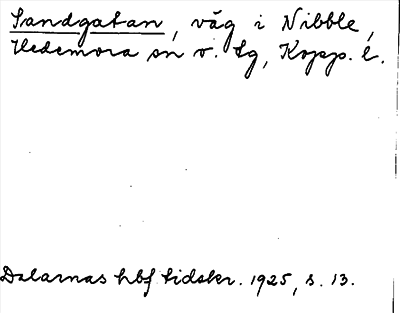 Sandgatan, väg i Nibble,
Hedemora sn o. tg, Kopp. l.
Dalarnas hbf tidskr. 1925, s. 13.